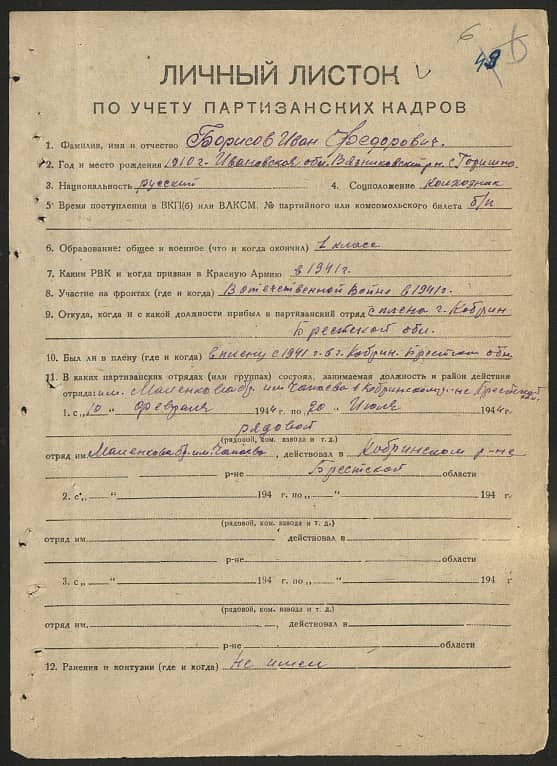 6
49
ЛИЧНЫЙ ЛИСТОК
ПО УЧЕТУ ПАРТИЗАНСКИХ КАДРОВ
1. Фамилия, имя и отчество Борисов Иван Федорович.
2. Год и место рождения 1910 г. Ивановская обл. Вязниковский р-н. с.
3. Национальность русский 4. Соцположение колхозник
5. Время поступления в ВКП(б) или ВЛКСМ. № партийного или комсомольского билета б/п
6. Образование: общее и военное (что и когда окончил) 1 класс
7. Каким РВК и когда призван в Красную Армию в 1941 г.
8. Участие на фронтах (где и когда) В отечественной Войне в 1941 г.
9. Откуда, когда и с какой должности прибыл в партизанский отряд с плена г. Кобрин
Брестской обл.
10. Был ли в плену (где и когда) в плену с 1941 г. в г. Кобрин. Брестской обл.
11. В каких партизанских отрядах (или группах) состоял, занимаемая должность и район действия
отряда: им. Маленкова бр. им. Чапаева в Кобринском р-не Брестской обл.
1. с „10 " февраля 1944 г. по „20 " Июля 1944 г.
рядовой
(рядовой, ком. взвода и т. д.)
отряд им. Маленкова бр. им. Чапаева, действовал в Кобринском р-не
р-не Брестской области
2. с „ " 194 г. по „ " 194 г.
(рядовой, ком. взвода и т. д.)
отряд им. действовал в
р-не области
3. с „ " 194 г. по „ " 194 г
(рядовой, ком. взвода и т. д.)
отряд им. , действовал в
р-не области
12. Ранения и контузии (где и когда) Не имел